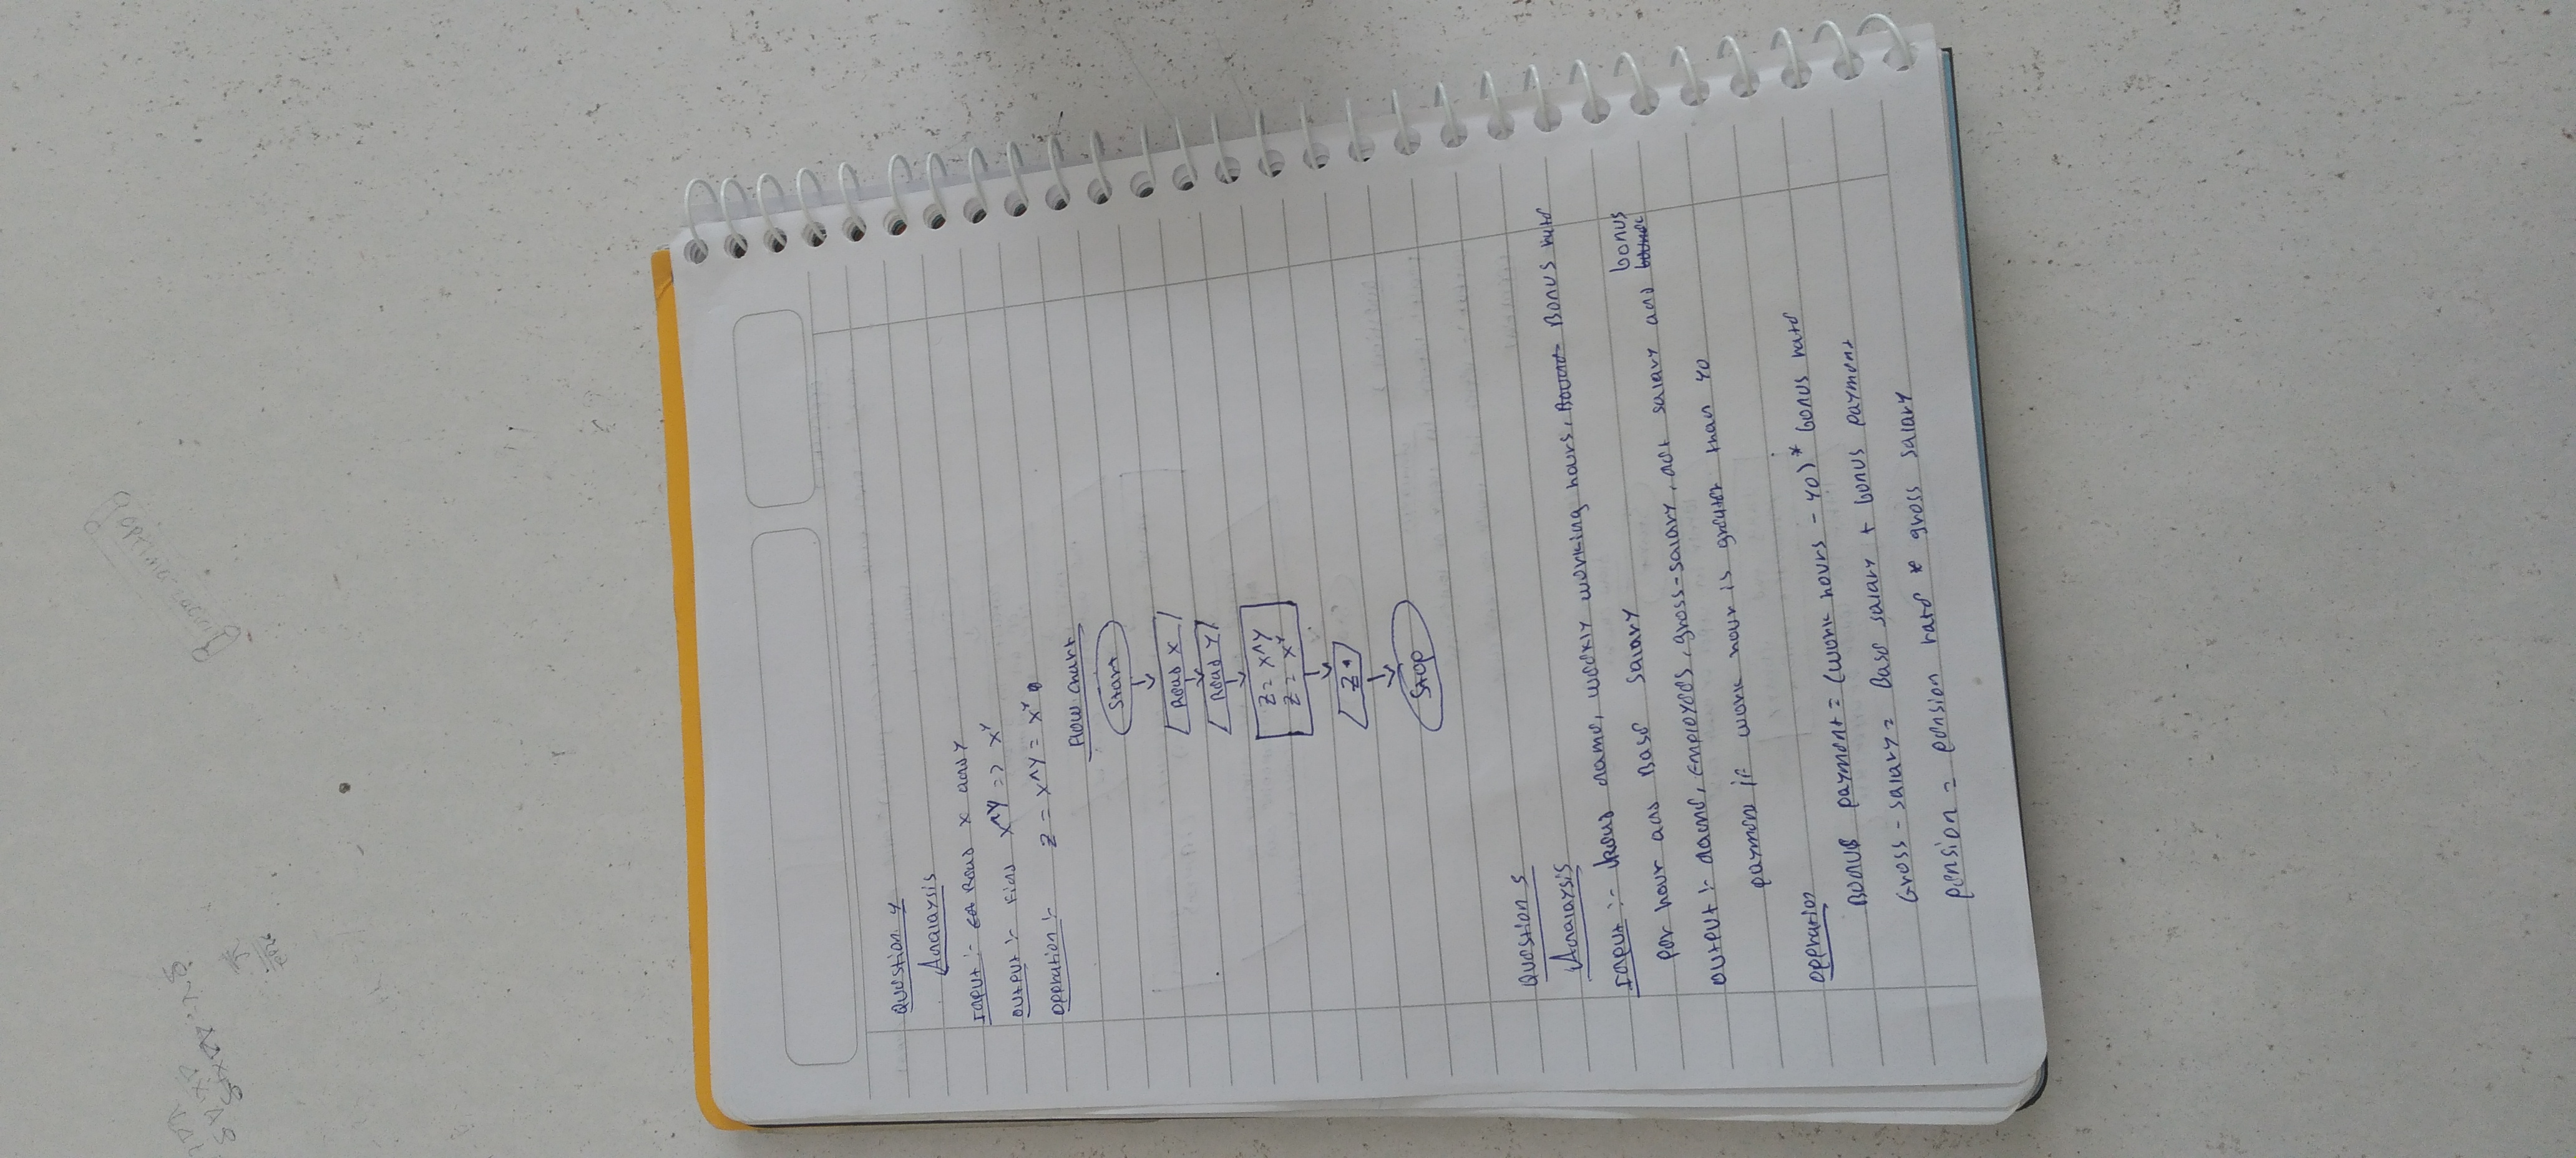 Question 4
Analaysis
Input :- Read X and Y
Output :- Find X^Y => X^Y
Oppration :- Z = X^Y = X^Y
Flow chart
Start
Read X
Read Y
Z = X^Y
Z = X^Y
Z
Stop
Question 5
Analaysis
Input :- Read name, weekly working hours, Bonus rate
per hour and Base salary
bonus
Output :- name, Employees, gross-salary, net salary and
payment if work hour is greater than 40
Oppration
Bonus payment = (work hours - 40) * bonus rate
Gross - salary = Base salary + bonus payment
pension = pension rate * gross salary